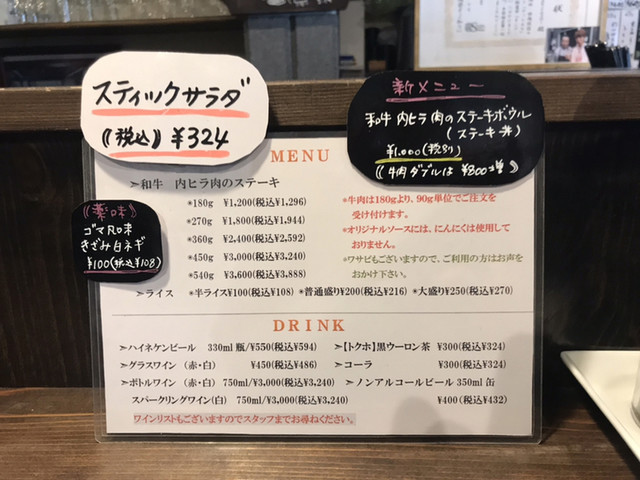 スティックサラダ
《税込》 ¥324
新メニュー
和牛 内ヒラ肉のステーキボウル
(ステーキ丼)
¥1,000(税別)
《牛肉ダブルは ¥800増》
MENU
➣和牛 内ヒラ肉のステーキ
*180g ¥1,200(税込¥1,296)
*270g ¥1,800(税込¥1,944)
*360g ¥2,400(税込¥2,592)
*450g ¥3,000(税込¥3,240)
*540g ¥3,600(税込¥3,888)
*牛肉は180gより、90g単位でご注文を
受け付けます。
*オリジナルソースには、にんにくは使用して
おりません。
*ワサビもございますので、ご利用の方はお声を
おかけ下さい。
《薬味》
ゴマ
きざみ白ネギ
¥100(税込¥108)
➣ライス *半ライス¥100(税込¥108) *普通盛り¥200(税込¥216) *大盛り¥250(税込¥270)
DRINK
➣ハイネケンビール 330ml 瓶/¥550(税込¥594)
➣グラスワイン (赤・白) ¥450(税込¥486)
➣ボトルワイン (赤・白) 750ml/¥3,000(税込¥3,240)
スパークリングワイン(白) 750ml/¥3,000(税込¥3,240)
➣【トクホ】黒ウーロン茶 ¥300(税込¥324)
➣コーラ ¥300(税込¥324)
➣ノンアルコールビール 350ml 缶
¥400(税込¥432)
ワインリストもございますのでスタッフまでお尋ねください。